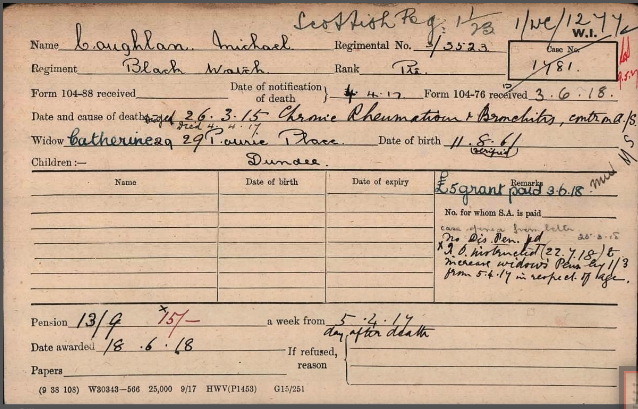 Scottish Reg: 1 1/23 1/WC/1277
W.I.
Name Coughlan. Michael Regimental No. S/3523
Case No.
1481.
Regiment Black Watch Rank Pte.
Form 104-88 received Date of notification of death 4.4.17 Form 104-76 received 3.6.18.
Date and cause of death 26.3.15 Chronic Rheumatism & Bronchitis, contr on A/S.
Died 4.4.17.
Widow Catherine 29 Pourie Place. Date of birth 11.8.61
verified
Children:— Dundee.
Name Date of birth Date of expiry Remarks
£5 grant paid 3.6.18
No. for whom S.A. is paid
case opened from letter
No Dis. Pen. pd
x I.O. instructed (22.7.18) to
increase widows Pens by 1/3
from 5.4.17 in respect of age.
Pension 13/9 x 15/- a week from 5.4.17
day after death
Date awarded 18.6.18 If refused, reason
Papers
(9 38 108) W30343—566 25,000 9/17 HWV(P1453) G15/251